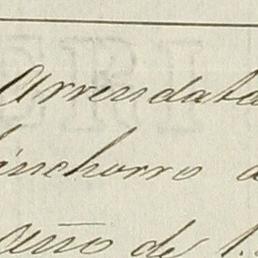 Arrendata
inchorro a
año de 1.